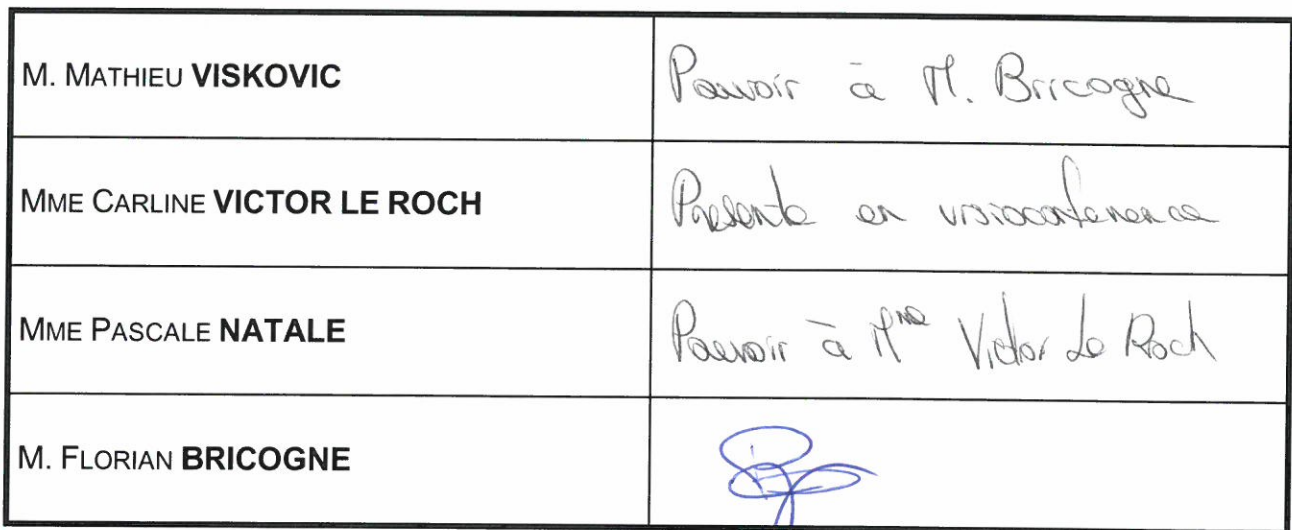 M. MATHIEU VISKOVIC
Pouvoir à M. Bricogne
MME CARLINE VICTOR LE ROCH
Présente en visioconférence
MME PASCALE NATALE
Pouvoir à Mme Victor Le Roch
M. FLORIAN BRICOGNE